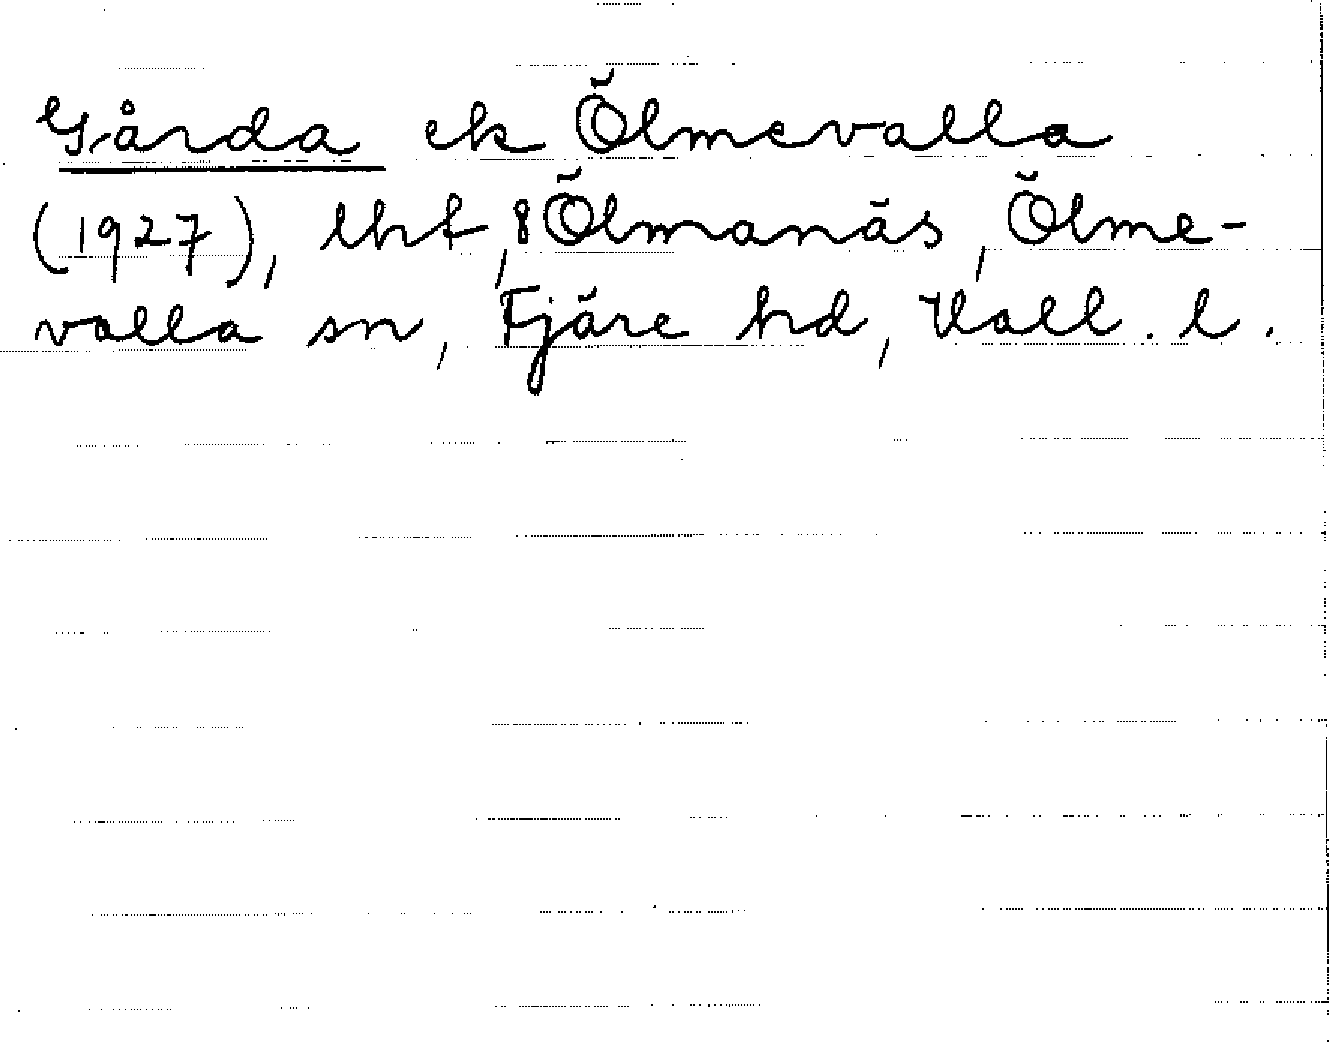 Gårda ek Ölmevalla
(1927), lht, 8 Ölmanäs, Ölme-
valla sn, Fjäre hd, Hall. l.